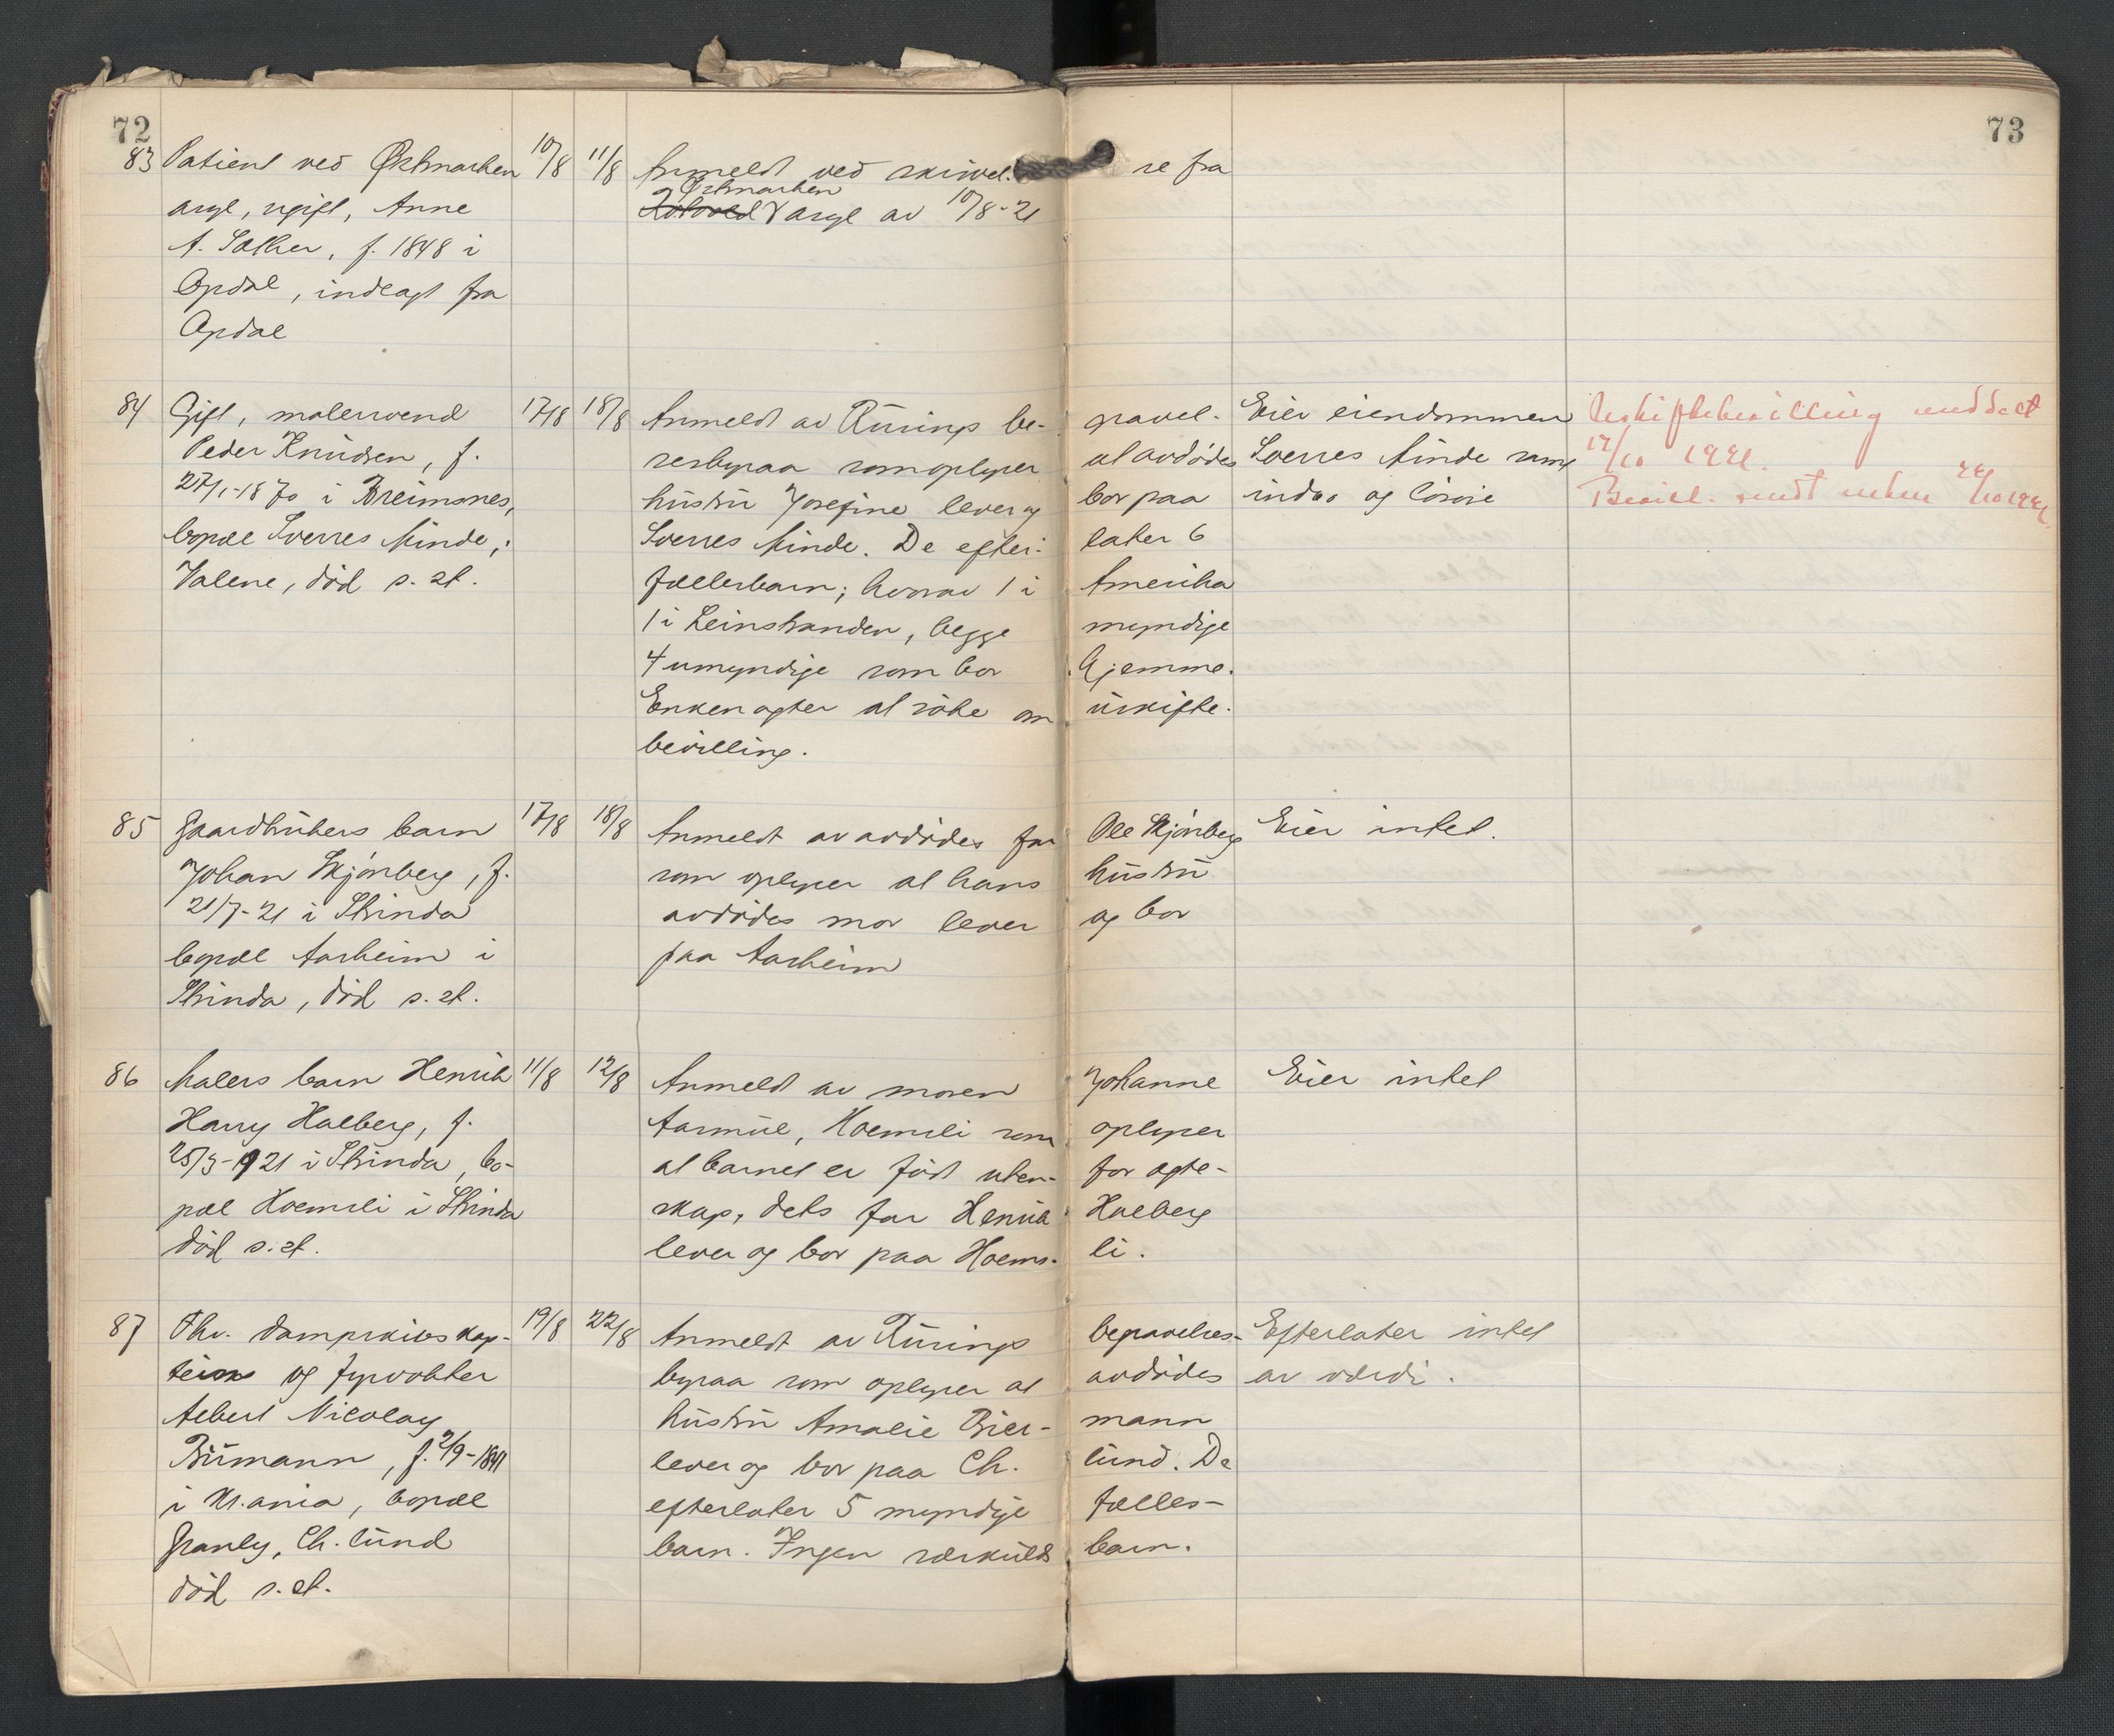 72
73
83 Patient ved Østmarken 10/8 11/8 Anmeldt ved skrivel- se fra
asyl, ugift, Anne Rotvold Østmarken asyl av 10/8-21
A. Sæther, f. 1848 i
Opdal, indlagt fra
Opdal
84 Gift, malersvend 17/8 18/8 Anmeldt av Rüsings be- gravel- Eier eiendommen Uskiftebevilling meddelt
Peder Knudsen, f. sesbyraa som oplyser at avdødes Sverres Minde samt 17/10 1921.
27/1-1870 i Breimsnes, hustru Josefine lever og bor paa indbo og løsøie Bevill. sendt enken 24/10 1921.
bopæl Sverres Minde, Sverres Minde. De efter- later 6
Valene, død s. st. fællesbarn; hvorav 1 i Amerika
1 i Leinstranden, begge myndige
4 umyndige som bor hjemme.
Enken agter at søke om uskifte-
bevilling.
85 Gaardbrukers barn 17/8 18/8 Anmeldt av avdødes far Ole Skjønberg Eier intet.
Johan Skjønberg, f. som oplyser at hans hustru
21/7-21 i Strinda avdødes mor lever og bor
bopæl Aarheim i paa Aarheim
Strinda, død s. st.
86 Malers barn Henrik 11/8 12/8 Anmeldt av moren Johanne Eier intet
Harry Halberg, f. Aarmul, Hoemsli som oplyser
25/3-1921 i Strinda, bo- at barnet er født uten- for egte-
pæl Hoemsli i Strinda skap, dets far Henrik Halberg
død s. st. lever og bor paa Hoems- li.
87 Fhv. dampskibskap- 19/8 22/8 Anmeldt av Rüsings begravelses- Efterlater intet
tein og fyrvokter byraa som oplyser at avdødes av værdi.
Albert Nicolay hustru Amalie Bier- mann
Biermann, f. 2/9-1841 lever og bor paa Ch. lund. De
i Kr.ania, bopæl efterlater 5 myndige fælles-
Granly, Ch. lund barn. Ingen særkulds barn.
død s. st.